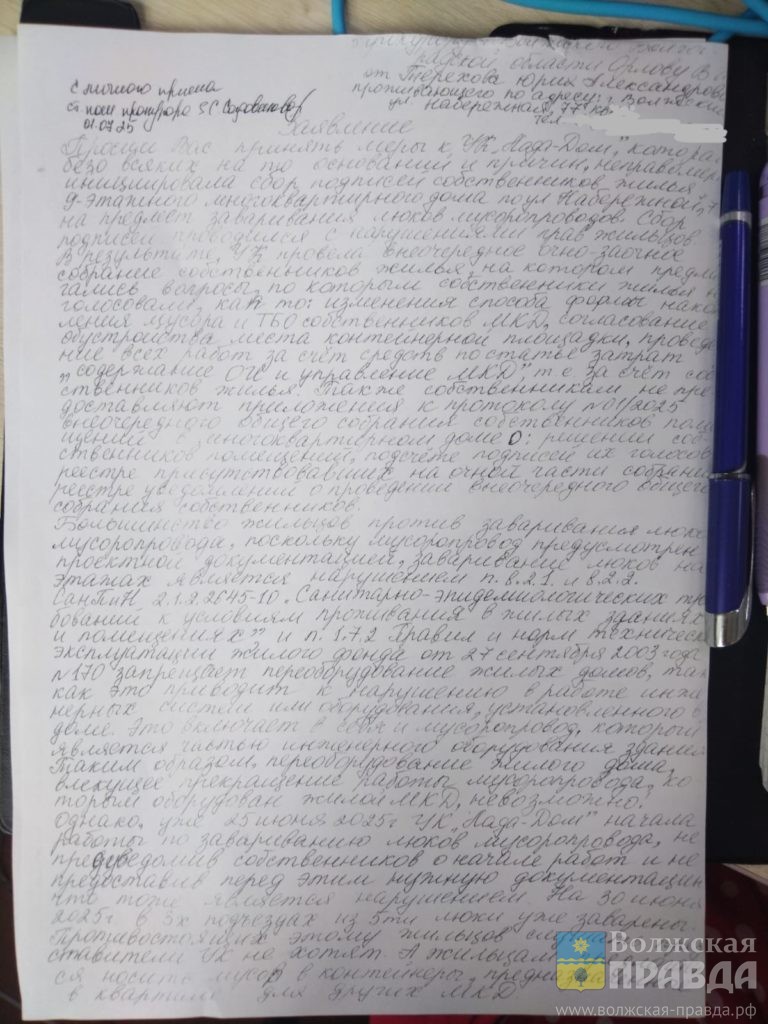 области Орлову В
от Терехова Юрия Александрови
с личного приема
проживающего по адресу: г. Волжский
ст. пом прокурора
ул. Набережная, 77 кв
01.07.25
тел.
Заявление
Просим Вас принять меры к УК „Лада-Дом", котора
безо всяких на то оснований и причин, неправомер
инициировала сбор подписей собственников жилья
9-этажного многоквартирного дома по ул Набережной, 7
на предмет заваривания люков мусоропроводов. Сбор
подписей проводился с нарушениями прав жильцов.
В результате, УК провела внеочередное очно-заочное
собрание собственников жилья, на котором предла
гались вопросы, по которым собственники жилья н
голосовали, как то: изменения способа формы накоп
ления мусора и ТБО собственников МКД, согласование
обустройства места контейнерной площадки, проведе
ние всех работ за счёт средств по статье затрат
„содержание ОИ и управление МКД", т.е. за счёт соб
ственников жилья. Также собственникам не пре
доставляют приложения к протоколу №01/2025
внеочередного общего собрания собственников поме
щений в многоквартирном доме о: решении соб
ственников помещений, подсчёте подписей их голосов
реестре присутствовавших на очной части собрания
реестре уведомлений о проведении внеочередного общего
собрания собственников.
Большинство жильцов против заваривания люков
мусоропровода, поскольку мусоропровод предусмотрен
проектной документацией, заваривание люков на
этажах является нарушением п. 8.2.1. и 8.2.2.
СанПиН 2.1.2.2645-10 „Санитарно-эпидемиологических тре
бований к условиям проживания в жилых зданиях
и помещениях" и п. 1.7.2 Правил и норм техническ
эксплуатации жилого фонда от 27 сентября 2003 года
№170 запрещает переоборудование жилых домов, так
как это приводит к нарушению в работе инже
нерных систем или оборудования, установленного в
доме. Это включает в себя и мусоропровод, который
является частью инженерного оборудования здания
Таким образом, переоборудование жилого дома,
влекущее прекращение работы мусоропровода, ко
торым оборудован жилой МКД, невозможно.
Однако, уже 25 июня 2025г УК „Лада-Дом" начала
работы по завариванию люков мусоропровода, не
предуведомив собственников о начале работ и не
предоставив перед этим нужную документацию
что тоже является нарушением. На 30 июня
2025г. в 3х подъездах из 5ти люки уже заварены.
Противостоящих этому жильцов
ставители УК не хотят. А жильцам
ся носить мусор в контейнеры,
в квартале для других МКД
Волжская
ПРАВДА
www.волжская-правда.рф